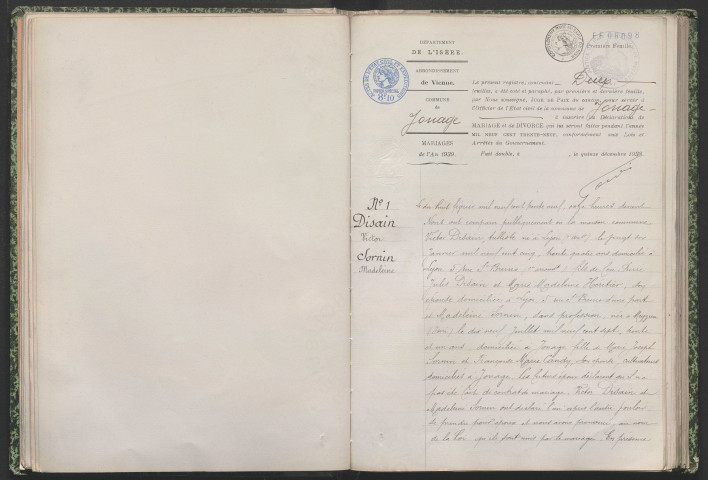 DÉPARTEMENT
DE L'ISÈRE.
ARRONDISSEMENT
de Vienne.
COMMUNE
de
Jonage
MARIAGES
de l'An 1939.
Première Feuille.
Le présent registre, contenant Deux
feuilles, a été coté et paraphé, par première et dernière feuille,
par Nous soussigné, Juge de Paix du canton, pour servir à
l'Officier de l'Etat civil de la commune de Jonage
à inscrire les Déclarations de
MARIAGE et de DIVORCE qui lui seront faites pendant l'année
MIL NEUF CENT TRENTE-NEUF, conformément aux Lois et
Arrêtés du Gouvernement.
Fait double, à , le quinze décembre 1938.
N° 1
Disain
Victor
Sornin
Madeleine
Le février mil neuf cent trente neuf, onze heures devant
Nous ont comparu publiquement en la maison commune
Victor Disain, né à Lyon le vingt
janvier mil neuf cent cinq, trente quatre ans domicilié à
Lyon 5 rue St Bruno fils de
Disain et Marie Madeleine son
épouse domiciliés à Lyon 5 rue St Bruno d'une part
et Madeleine Sornin, sans profession, née à
le dix neuf Juillet mil neuf cent sept, trente
et un ans, domiciliée à Jonage fille de Marie Joseph
Sornin et Françoise Marie son épouse, cultivateurs
domiciliés à Jonage. Les futurs époux déclarent qu'il n'a
pas été fait de contrat de mariage. Victor Disain et
Madeleine Sornin ont déclaré l'un après l'autre vouloir
se prendre pour époux et nous avons prononcé, au nom
de la Loi qu'ils sont unis par le mariage. En présence